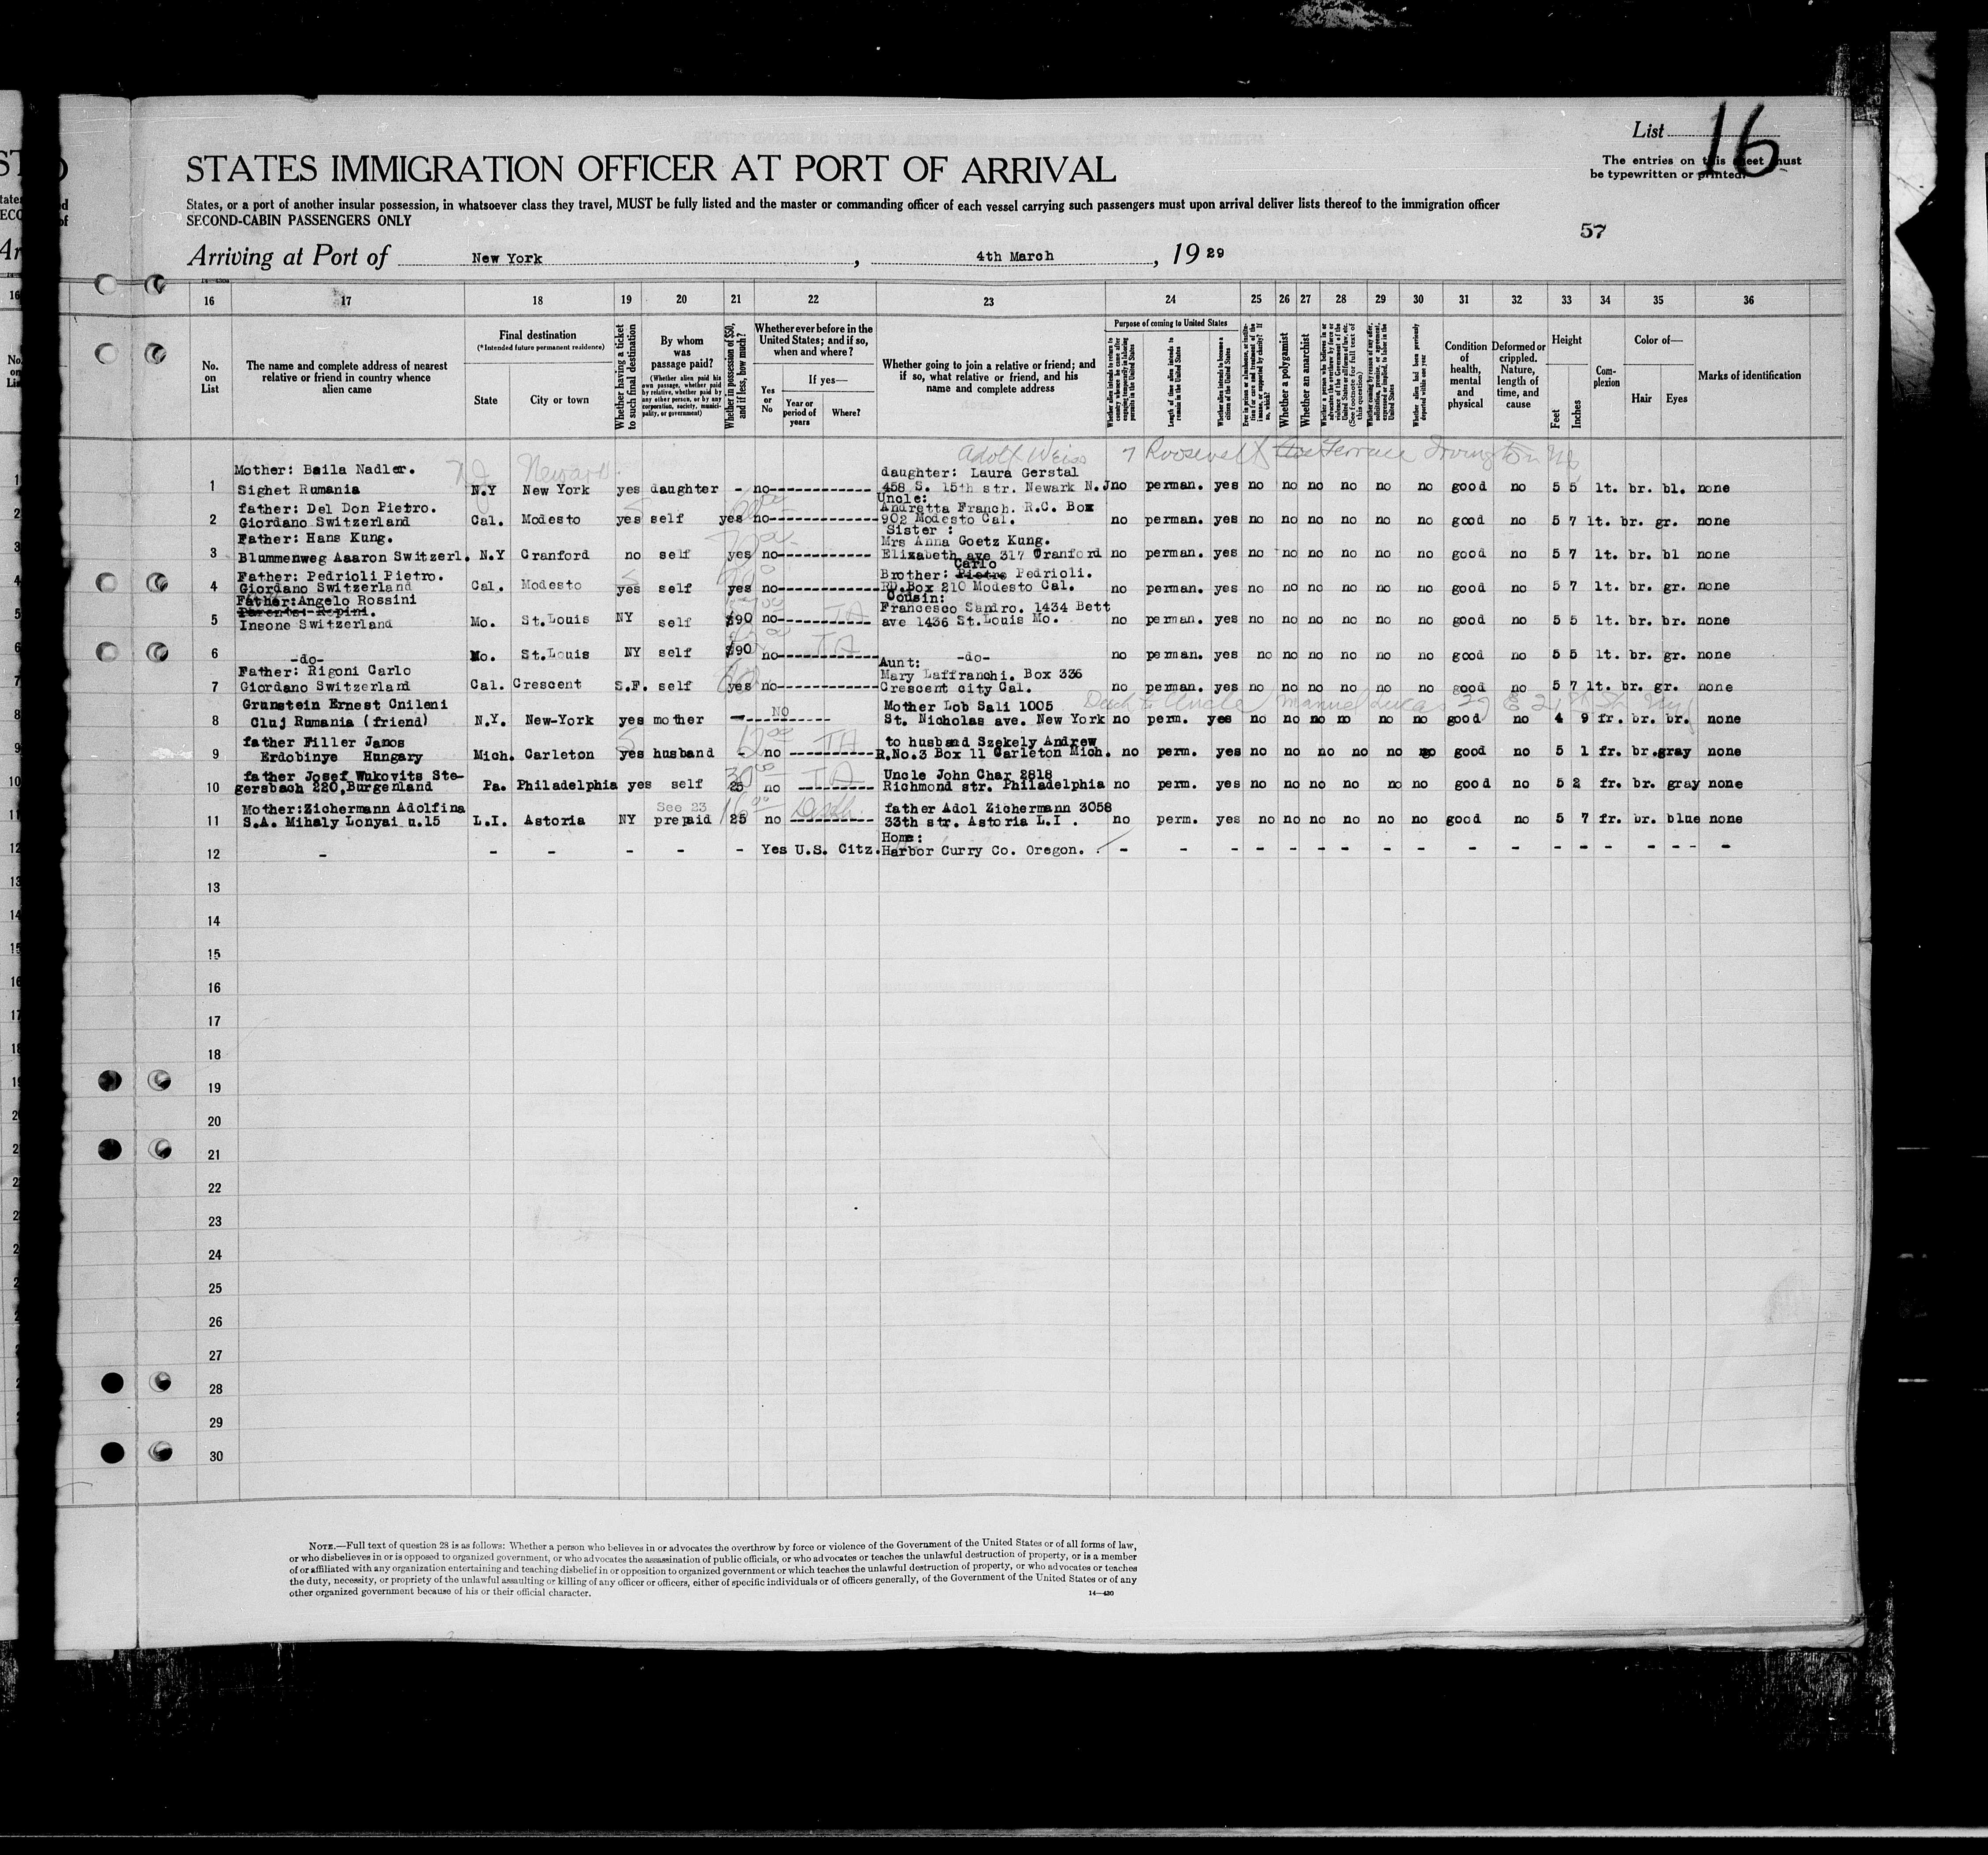 List 16
The entries on this sheet must
be typewritten or printed.
STATES IMMIGRATION OFFICER AT PORT OF ARRIVAL
States, or a port of another insular possession, in whatsoever class they travel, MUST be fully listed and the master or commanding officer of each vessel carrying such passengers must upon arrival deliver lists thereof to the immigration officer
SECOND-CABIN PASSENGERS ONLY
57
Arriving at Port of New York, 4th March, 1929
16 17 18 19 20 21 22 23 24 25 26 27 28 29 30 31 32 33 34 35 36
No. on List
The name and complete address of nearest relative or friend in country whence alien came
Final destination
(*Intended future permanent residence)
State
City or town
Whether having a ticket to such final destination
By whom was passage paid?
(Whether alien paid his own passage, whether paid by relative, whether paid by any other person, or by any corporation, society, municipality, or government)
Whether in possession of $50, and if less, how much?
Whether ever before in the United States; and if so, when and where?
Yes or No
If yes—
Year or period of years
Where?
Whether going to join a relative or friend; and if so, what relative or friend, and his name and complete address
Purpose of coming to United States
Length of time alien intends to remain in the United States
Whether alien intends to become a citizen of the United States
Whether a polygamist
Whether an anarchist
Condition of health, mental and physical
Deformed or crippled. Nature, length of time, and cause
Height
Feet
Inches
Complexion
Color of—
Hair
Eyes
Marks of identification
Adolf Weiss 7 Roosevelt Ave Terrace Irvington NJ
NJ Newark
Mother: Baila Nadler. daughter: Laura Gerstal
1 Sighet Rumania N.Y New York yes daughter - no 458 S. 15th str. Newark N.J no perman. yes no no no no no no good no 5 5 lt. br. bl. none
father: Del Don Pietro. Uncle: Andretta Franch. R.C. Box
2 Giordano Switzerland Cal. Modesto yes self yes no 902 Modesto Cal. no perman. yes no no no no no no good no 5 7 lt. br. gr. none
Father: Hans Kung. Sister : Mrs Anna Goetz Kung.
3 Blummenweg Aaaron Switzerl. N.Y Cranford no self yes no Elizabeth ave 317 Cranford no perman. yes no no no no no no good no 5 7 lt. br. bl none
Father: Pedrioli Pietro. Brother: Pietro Carlo Pedrioli.
4 Giordano Switzerland Cal. Modesto yes self yes no RD.Box 210 Modesto Cal. no perman. yes no no no no no no good no 5 7 lt. br. gr. none
Father:Angelo Rossini Cousin:
Parents: Ropini. Francesco Sandro. 1434 Bett
5 Insone Switzerland Mo. St.Louis NY self $90 no TA ave 1436 St.Louis Mo. no perman. yes no no no no no no good no 5 5 lt. br. br. none
6 -do- Mo. St.Louis NY self $90 no TA -do- no perman. yes no no no no no no good no 5 5 lt. br. gr. none
Father: Rigoni Carlo Aunt: Mary Laffranchi. Box 336
7 Giordano Switzerland Cal. Crescent S.F. self yes no Crescent city Cal. no perman. yes no no no no no no good no 5 7 lt. br. gr. none
Disch to Uncle Emanuel Lucas
Grunstein Ernest Cnileni NO Mother Lob Sali 1005
8 Cluj Rumania (friend) N.Y. New-York yes mother - St. Nicholas ave. New York no perm. yes no no no no no no good no 4 9 fr. br. br. none
father Filler Janos to husband Szekely Andrew
9 Erdobinye Hungary Mich. Carleton yes husband - no TA R.No.3 Box 11 Carleton Mich. no perm. yes no no no no no no good no 5 1 fr. br. gray none
father Josef Wukovits Ste- Uncle John Char 2818
10 gersbach 220,Burgenland Pa. Philadelphia yes self 25 no TA Richmond str. Philadelphia no perm. yes no no no no no no good no 5 2 fr. br. gray none
Mother:Zichermann Adolfina See 23 father Adol Zichermann 3058
11 S.A. Mihaly Lonyai u.15 L.I. Astoria NY prepaid 25 no 33th str. Astoria L.I . no perm. yes no no no no no no good no 5 7 fr. br. blue none
Home:
12 - - - - - - Yes U.S. Citz. Harbor Curry Co. Oregon. - - - - - - - - - - - - - - - - -
13
14
15
16
17
18
19
20
21
22
23
24
25
26
27
28
29
30
NOTE.—Full text of question 28 is as follows: Whether a person who believes in or advocates the overthrow by force or violence of the Government of the United States or of all forms of law,
or who disbelieves in or is opposed to organized government, or who advocates the assassination of public officials, or who advocates or teaches the unlawful destruction of property, or is a member
of or affiliated with any organization entertaining and teaching disbelief in or opposition to organized government or which teaches the unlawful destruction of property, or who advocates or teaches
the duty, necessity, or propriety of the unlawful assaulting or killing of any officer or officers, either of specific individuals or of officers generally, of the Government of the United States or of any
other organized government because of his or their official character.
14—430